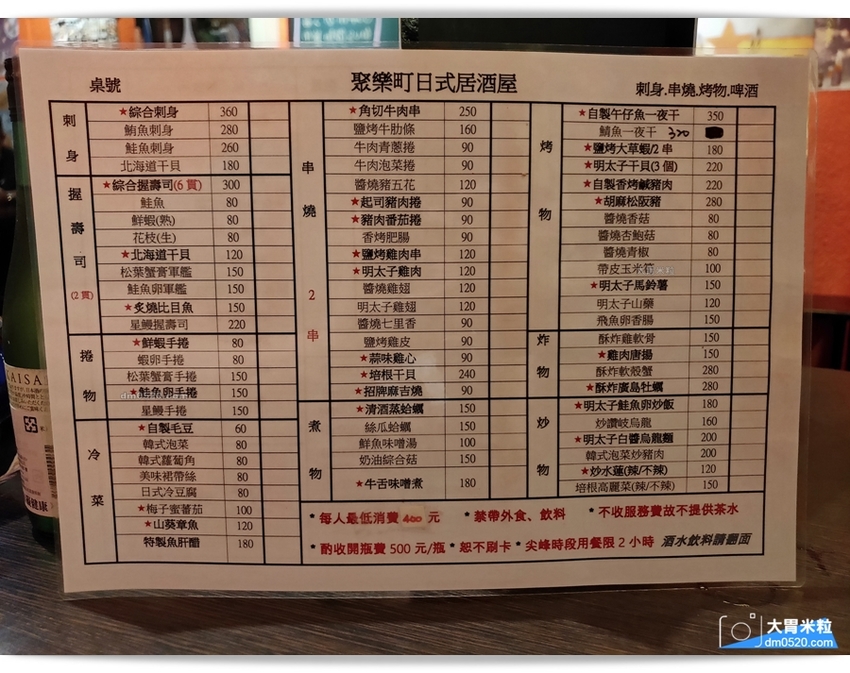 桌號 聚樂町日式居酒屋 刺身.串燒.烤物.啤酒
刺身
★綜合刺身 360
鮪魚刺身 280
鮭魚刺身 260
北海道干貝 180
握壽司(2貫)
★綜合握壽司(6貫) 300
鮭魚 80
鮮蝦(熟) 80
花枝(生) 80
★北海道干貝 120
松葉蟹膏軍艦 150
鮭魚卵軍艦 150
★炙燒比目魚 150
星鰻握壽司 220
捲物
★鮮蝦手捲 80
蝦卵手捲 80
松葉蟹膏手捲 150
★鮭魚卵手捲 150
星鰻手捲 150
冷菜
★自製毛豆 60
韓式泡菜 80
韓式蘿蔔角 80
美味裙帶絲 80
日式冷豆腐 80
★梅子蜜蕃茄 100
★山葵章魚 120
特製魚肝醋 180
串燒2串
★角切牛肉串 250
鹽烤牛肋條 160
牛肉青蔥捲 90
牛肉泡菜捲 90
醬燒豬五花 120
★起司豬肉捲 120
★豬肉番茄捲 90
香烤肥腸 90
★鹽燒雞肉串 120
★明太子雞肉 120
醬燒雞翅 120
明太子雞翅 120
醬燒七里香 90
鹽烤雞皮 90
★蒜味雞心 90
★培根干貝 240
★招牌麻吉燒 90
煮物
★清酒蒸蛤蠣 150
絲瓜蛤蠣 150
鮮魚味噌湯 100
奶油綜合菇 150
★牛舌味噌煮 180
烤物
★自製午仔魚一夜干 350
鯖魚一夜干 320
★鹽烤大草蝦/2串 180
★明太子干貝(3個) 220
★自製香烤鹹豬肉 220
★胡麻松阪豬 280
醬燒香菇 80
醬燒杏鮑菇 80
醬燒青椒 80
帶皮玉米筍 100
★明太子馬鈴薯 150
明太子山藥 120
飛魚卵香腸 150
炸物
酥炸雞軟骨 150
★雞肉唐揚 150
酥炸軟殼蟹 280
★酥炸廣島牡蠣 280
炒物
★明太子鮭魚卵炒飯 180
炒讚岐烏龍 160
★明太子白醬烏龍麵 200
韓式泡菜炒豬肉 200
★炒水蓮(辣/不辣) 120
培根高麗菜(辣/不辣) 150
*每人最低消費 400 元 *禁帶外食、飲料 *不收服務費故不提供茶水
*酌收開瓶費 500 元/瓶 *恕不刷卡 *尖峰時段用餐限 2 小時 酒水飲料請翻面
大胃米粒
dm0520.com